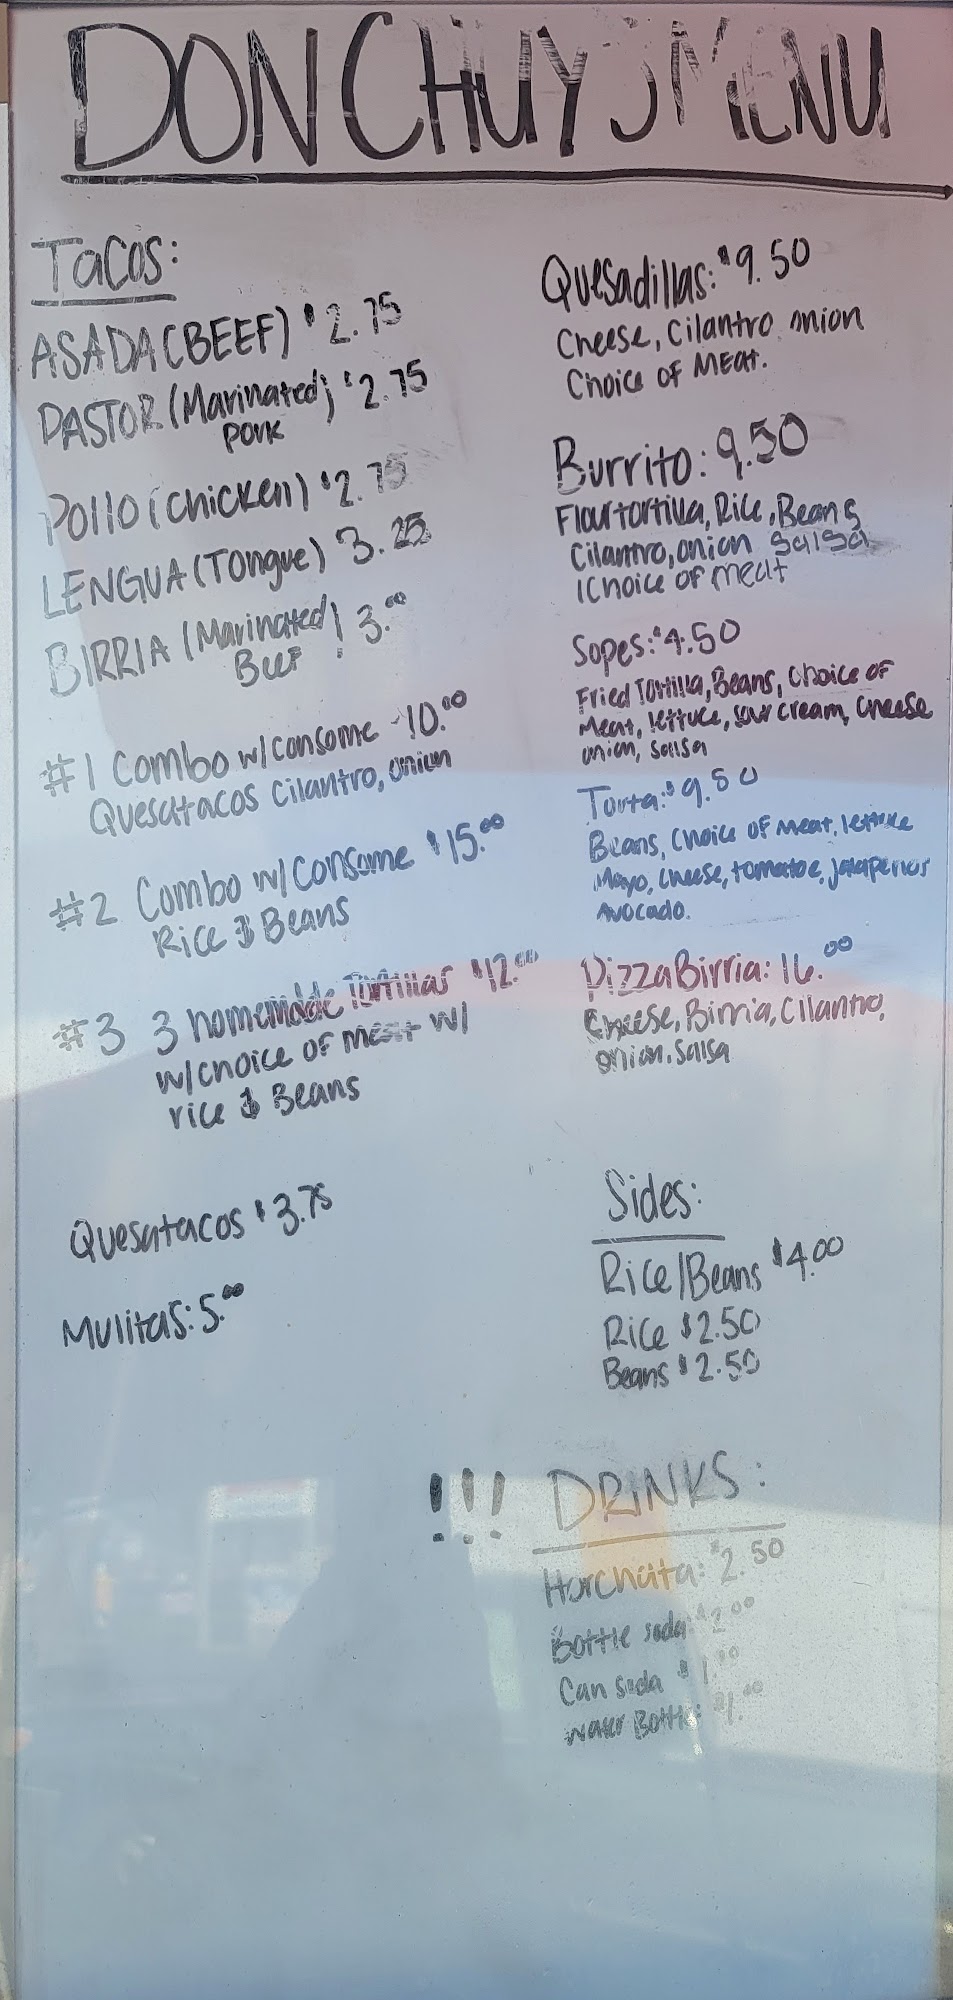 DON CHUY'S MENU
Tacos:
ASADA (BEEF) $2.75
PASTOR (Marinated) $2.75
Pork
POllO (Chicken) $2.75
LENGUA (Tongue) 3.25
BIRRIA (Marinated) 3.00
Beef
#1 Combo w/consome -10.00
Quesatacos Cilantro, onion
#2 Combo w/Consome $15.00
Rice & Beans
#3 3 homemade Tortillas $12.00
w/choice of meat w/
rice & Beans
Quesatacos $3.75
Mulitas: 5.00
Quesadillas: $9.50
Cheese, Cilantro, onion
Choice of Meat.
Burrito: 9.50
Flour tortilla, Rice, Beans
Cilantro, onion Salsa
Choice of meat
Sopes: $4.50
Fried Tortilla, Beans, Choice of
Meat, lettuce, sour cream, cheese
onion, salsa
Torta: $9.50
Beans, Choice of meat, lettuce
Mayo, cheese, tomatoe, jalapenos
Avocado.
Pizza Birria: 16.00
Cheese, Birria, Cilantro,
onion, salsa
Sides:
Rice/Beans $4.00
Rice $2.50
Beans $2.50
!!! DRINKS:
Horchata: $2.50
Bottle soda: $2.00
Can soda $1.00
Water Bottle: $1.00